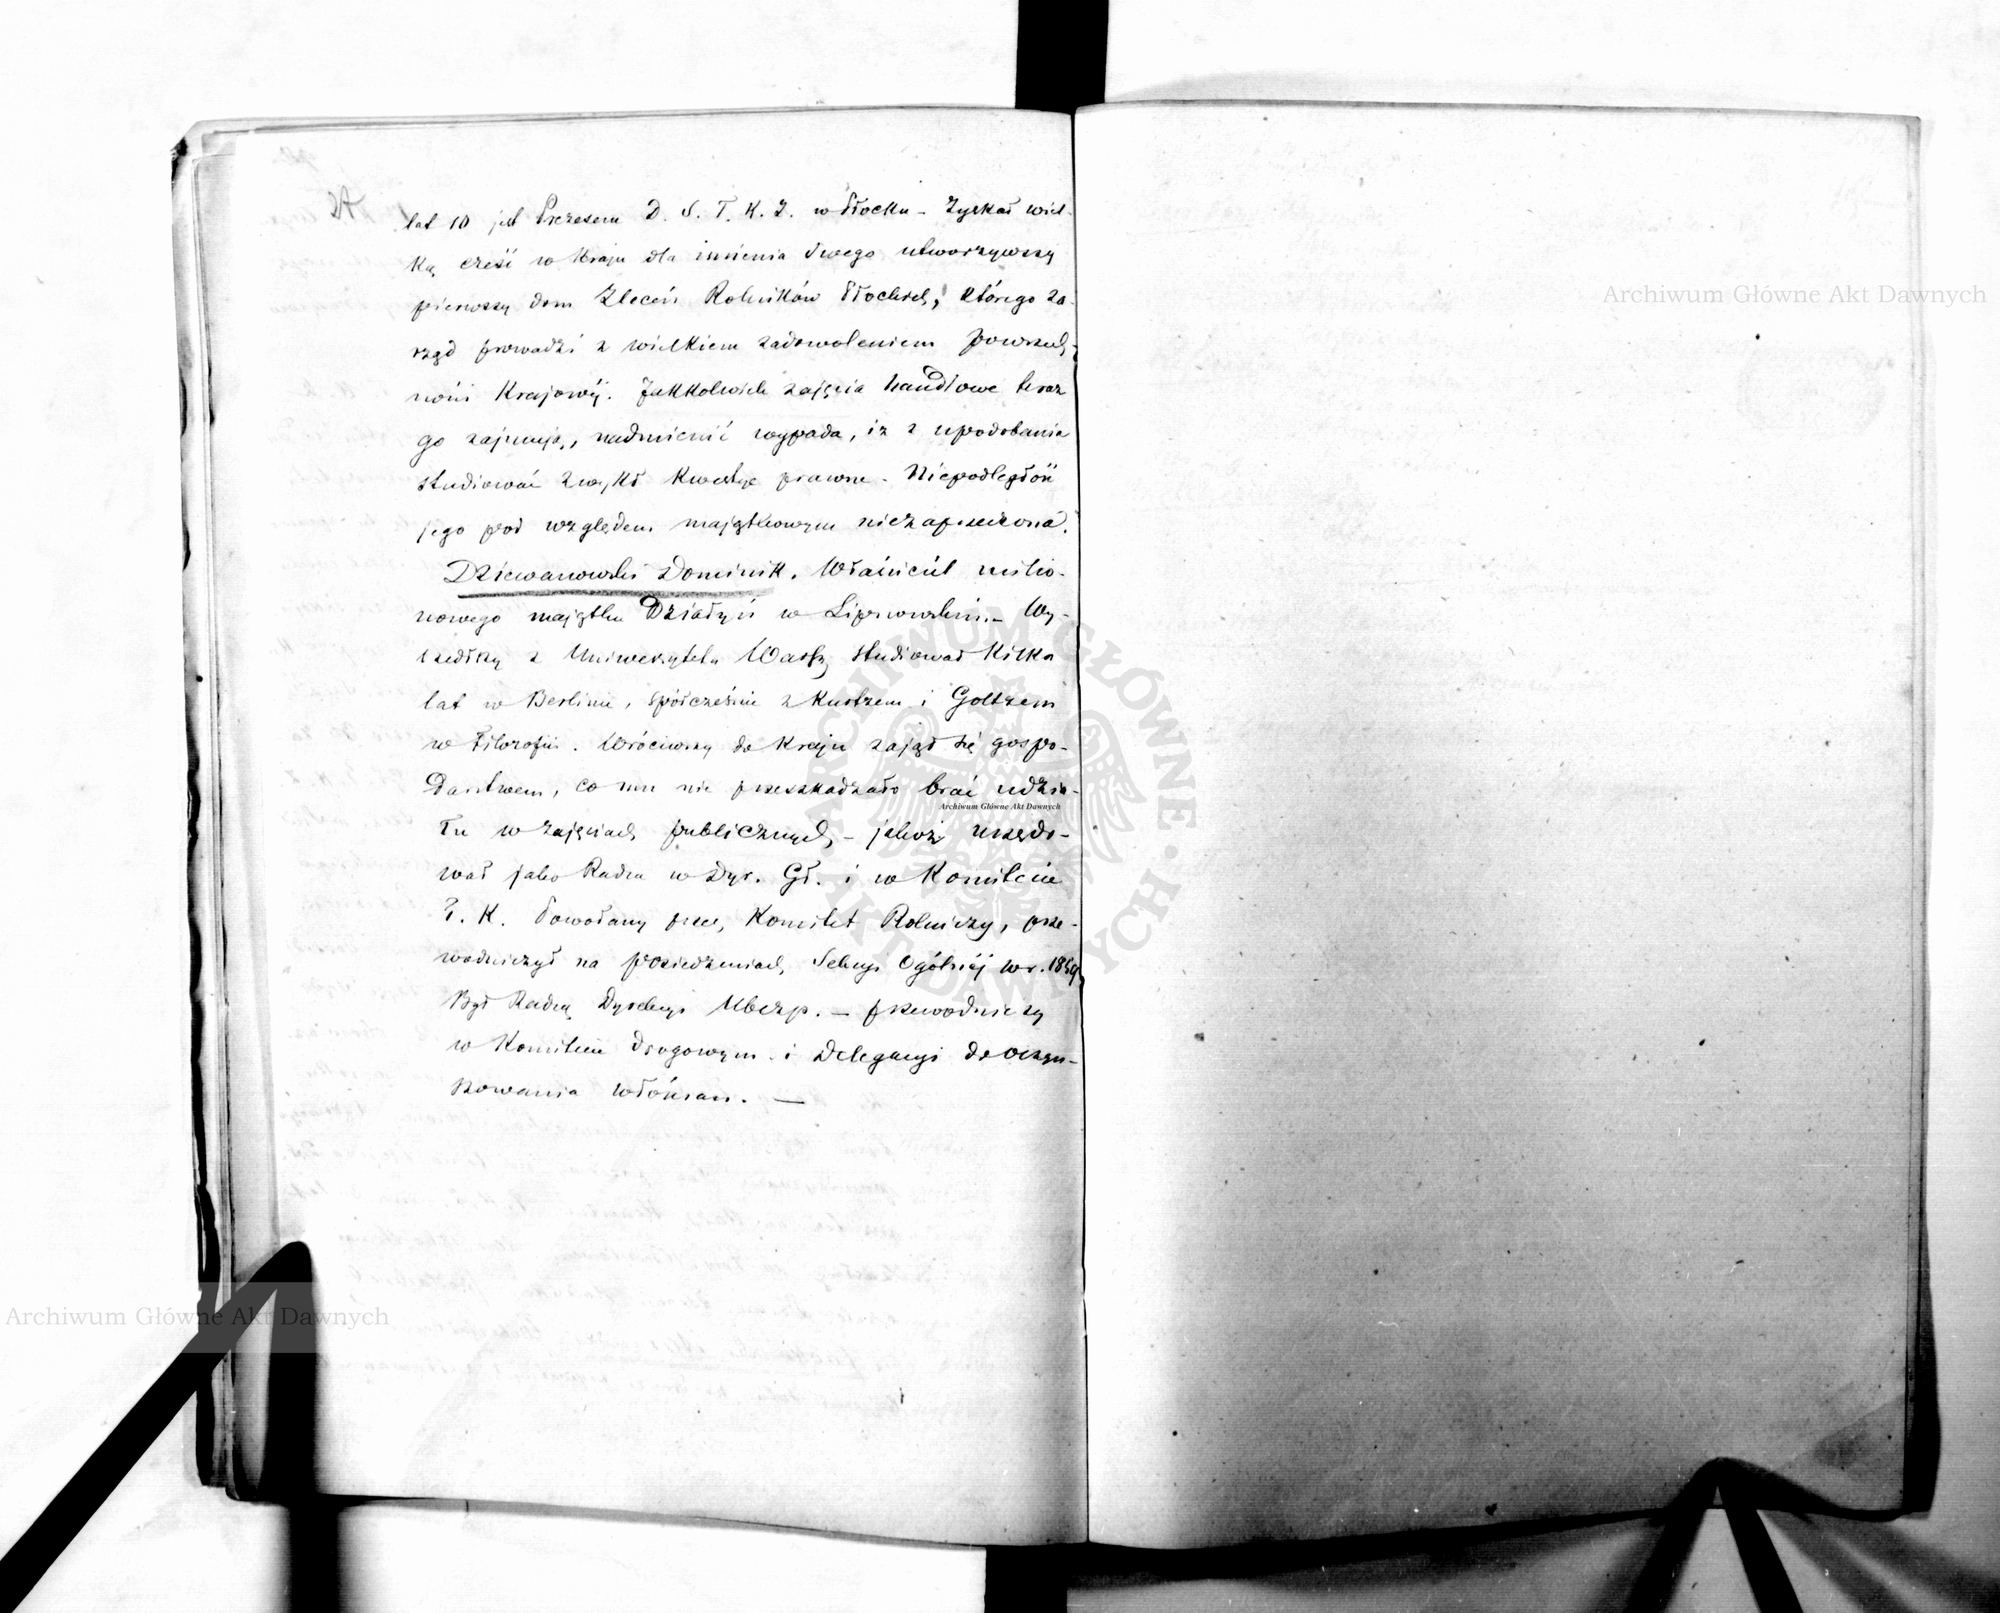 lat 10 jest Prezesem D. S. T. K. Z. w Płocku – Zyskał wiel-
ką cześć w Kraju dla imienia swego utworzywszy
pierwszy dom Zleceń Rolników Płockich, którego za-
rząd prowadzi z wielkiem zadowoleniem powszech-
ności Krajowéj. Jakkolwiek zajęcia handlowe teraz
go zajmują, nadmienić wypada, iż z upodobania
studiować zwykł kwestye prawne – Niepodległość
jego pod względem majątkowym niezaprzeczona.
Dziewanowski Dominik. Właściciel milio-
nowego majątku Działyń w Lipnowskim – Wy-
szedłszy z Uniwersytetu Warsz. studiował kilka
lat w Berlinie, spółcześnie z Kurtzem i Goltzem
w Filozofii. Wróciwszy do Kraju zajął się gospo-
darstwem, co mu nie przeszkadzało brać udzia-
łu w zajęciach publicznych, – jakoż urzędo-
wał jako Radca w Dyr. Gł. i w Komitecie
T. K. Powołany przez Komitet Rolniczy, prze-
wodniczył na posiedzeniach Sekcyi Ogólnéj w r. 1859
Był Radcą Dyrekcyi Ubezp. – przewodniczy
w Komitecie drogowym i Delegacyi do oczyn-
szowania włościan. —
Archiwum Główne Akt Dawnych
Archiwum Główne Akt Dawnych
Archiwum Główne Akt Dawnych
ARCHIWUM GŁÓWNE AKT DAWNYCH